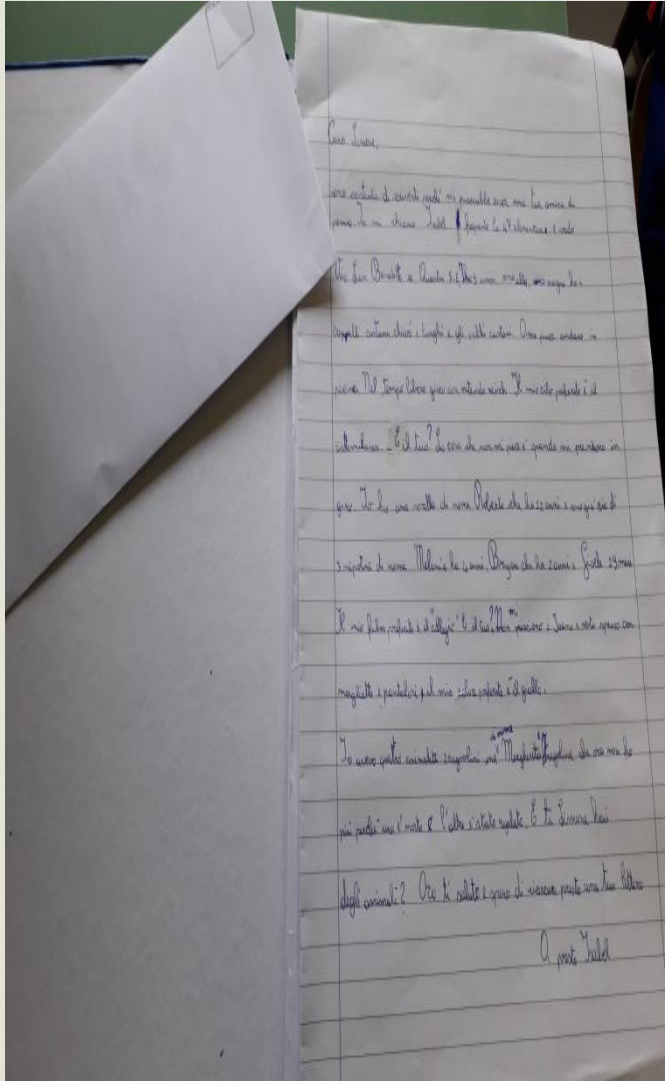 Caro Simone,
sono contenta di scriverti perché mi piacerebbe essere una tua amica di
penna. Io mi chiamo Isabel frequento la 4ª elementare e vado
Via San Benedetto a Quarto 9 anni sono alta, sono magra ho i
capelli castani chiari e lunghi e gli occhi castani. Amo andare in
piscina Nel tempo libero gioco con nintendo switch Il mio cibo preferito è il
E il tuo? La cosa che non mi piace è quando mi prendono in
giro. Io ho una sorella di nome Roberta che ha 22 anni e sono già zia di
3 nipotini di nome Melania ha 4 anni, Bryan che ha 2 anni e Gisella 29 mesi
Il mio film preferito è il "collegio" E il tuo? Non mi piacciono i Jeans e vesto spesso con
maglietta e pantaloni il mio colore preferito è il giallo.
Io avevo quattro animaletti di nome Margherita Fragolina che ora non ho
più perché uno è morto e l'altro è stato regalato. E tu Simone hai
degli animali? Ora ti saluto e spero di ricevere presto una tua lettera
A presto Isabel